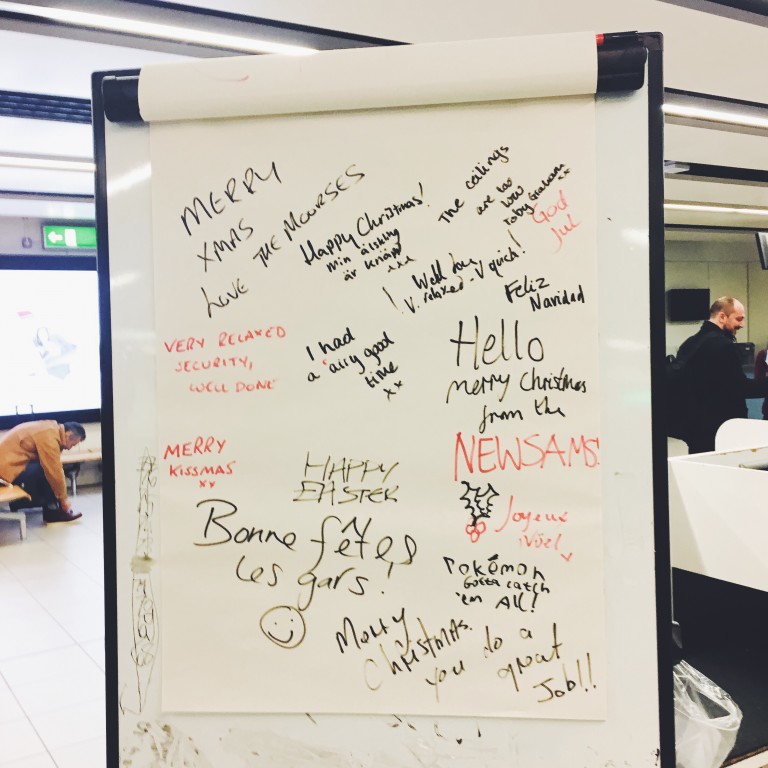 MERRY
XMAS
LOVE THE MOORSES
Happy Christmas!
min älskling
är knäpp
xxx
The ceilings
are too
low
Toby Graham
xx
God
Jul
! Well done
V. relaxed - V quick!
Feliz
Navidad
VERY RELAXED
SECURITY,
WELL DONE
I had
a 'airy good
time
xx
Hello
merry Christmas
from the
NEWSAMS!
MERRY
KISSMAS
xx
HAPPY
EASTER
Joyeux
Noël
x
Bonne fêtes
les gars!
Pokémon
Gotta catch
'em All!
Merry
Christmas.
you do a
great
Job!!